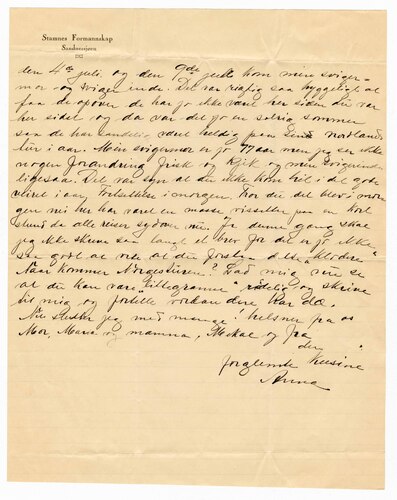 Stamnes Formannskap
Sandnessjøen
den 4de juli og den 9de juli kom mine sviger-
mor og sviger inde. Det var riktig saa hyggeligt at
faa de opover de har jo ikke været her siden du var
her sidst og da var det jo en solrig sommer
saa de har været heldig paa sine nordlands
tur i aar. Min svigermor er jo 77 aar men jeg ser ikke
nogen forandring frisk og kjæk og min svigerinde
ligesaa. Det var synd at du ikke kom hit i det gode
veiret i aar. Fortsættelse i morgen. Tror du det blev i mor
gen nei her har været en masse visitter paa en kort
stund da alle reiser sydover nu. Ja denne gang skal
jeg ikke skrive saa langt et brev for det er jo ikke
saa godt at vite at du forstaar dette
Naar kommer Norgesturen? Lad mig nu se
at du kan være lillegranne snild og skrive
til mig og fortelle vordan dere har de.
Nu slutter jeg med mange hilsner fra os
Mor, Maria og mamma, Mikal og fra
din
forglemte Kusine
Anna